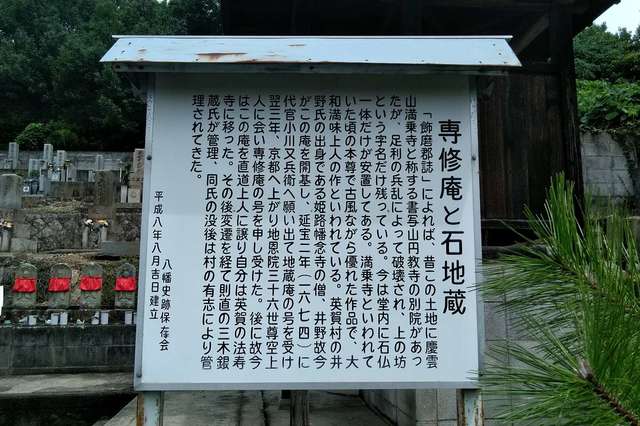 専修庵と石地蔵
「飾磨郡誌」によれば、昔この土地に慶雲
山満乗寺と称する書写山円教寺の別院があっ
たが、足利の兵乱によって破壊され、上の坊
という字名だけ残っている。今は堂内に石仏
一体だけが安置してある。満乗寺といわれて
いた頃の本尊で古風ながら優れた作品で、大
和満味上人の作といわれている。英賀村の井
野氏の出身である姫路幡念寺の僧、井野故今
がこの庵を開基し、延宝二年（一六七四）に
代官小川又兵衛へ願い出て地蔵庵の号を受け
翌三年、京都へ上がり地恩院三十六世尊空上
人に会い専修庵の号を申し受けた。後に故今
はこの庵を直道上人に譲り自分は英賀の法寿
寺に移った。その後変遷を経て則直の三木銀
蔵氏が管理、同氏の没後は村の有志により管
理されてきた。
平成八年八月吉日建立
八幡史跡保存会